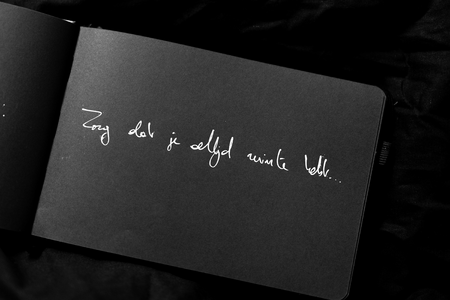 Zorg dat je altijd ruimte hebt...